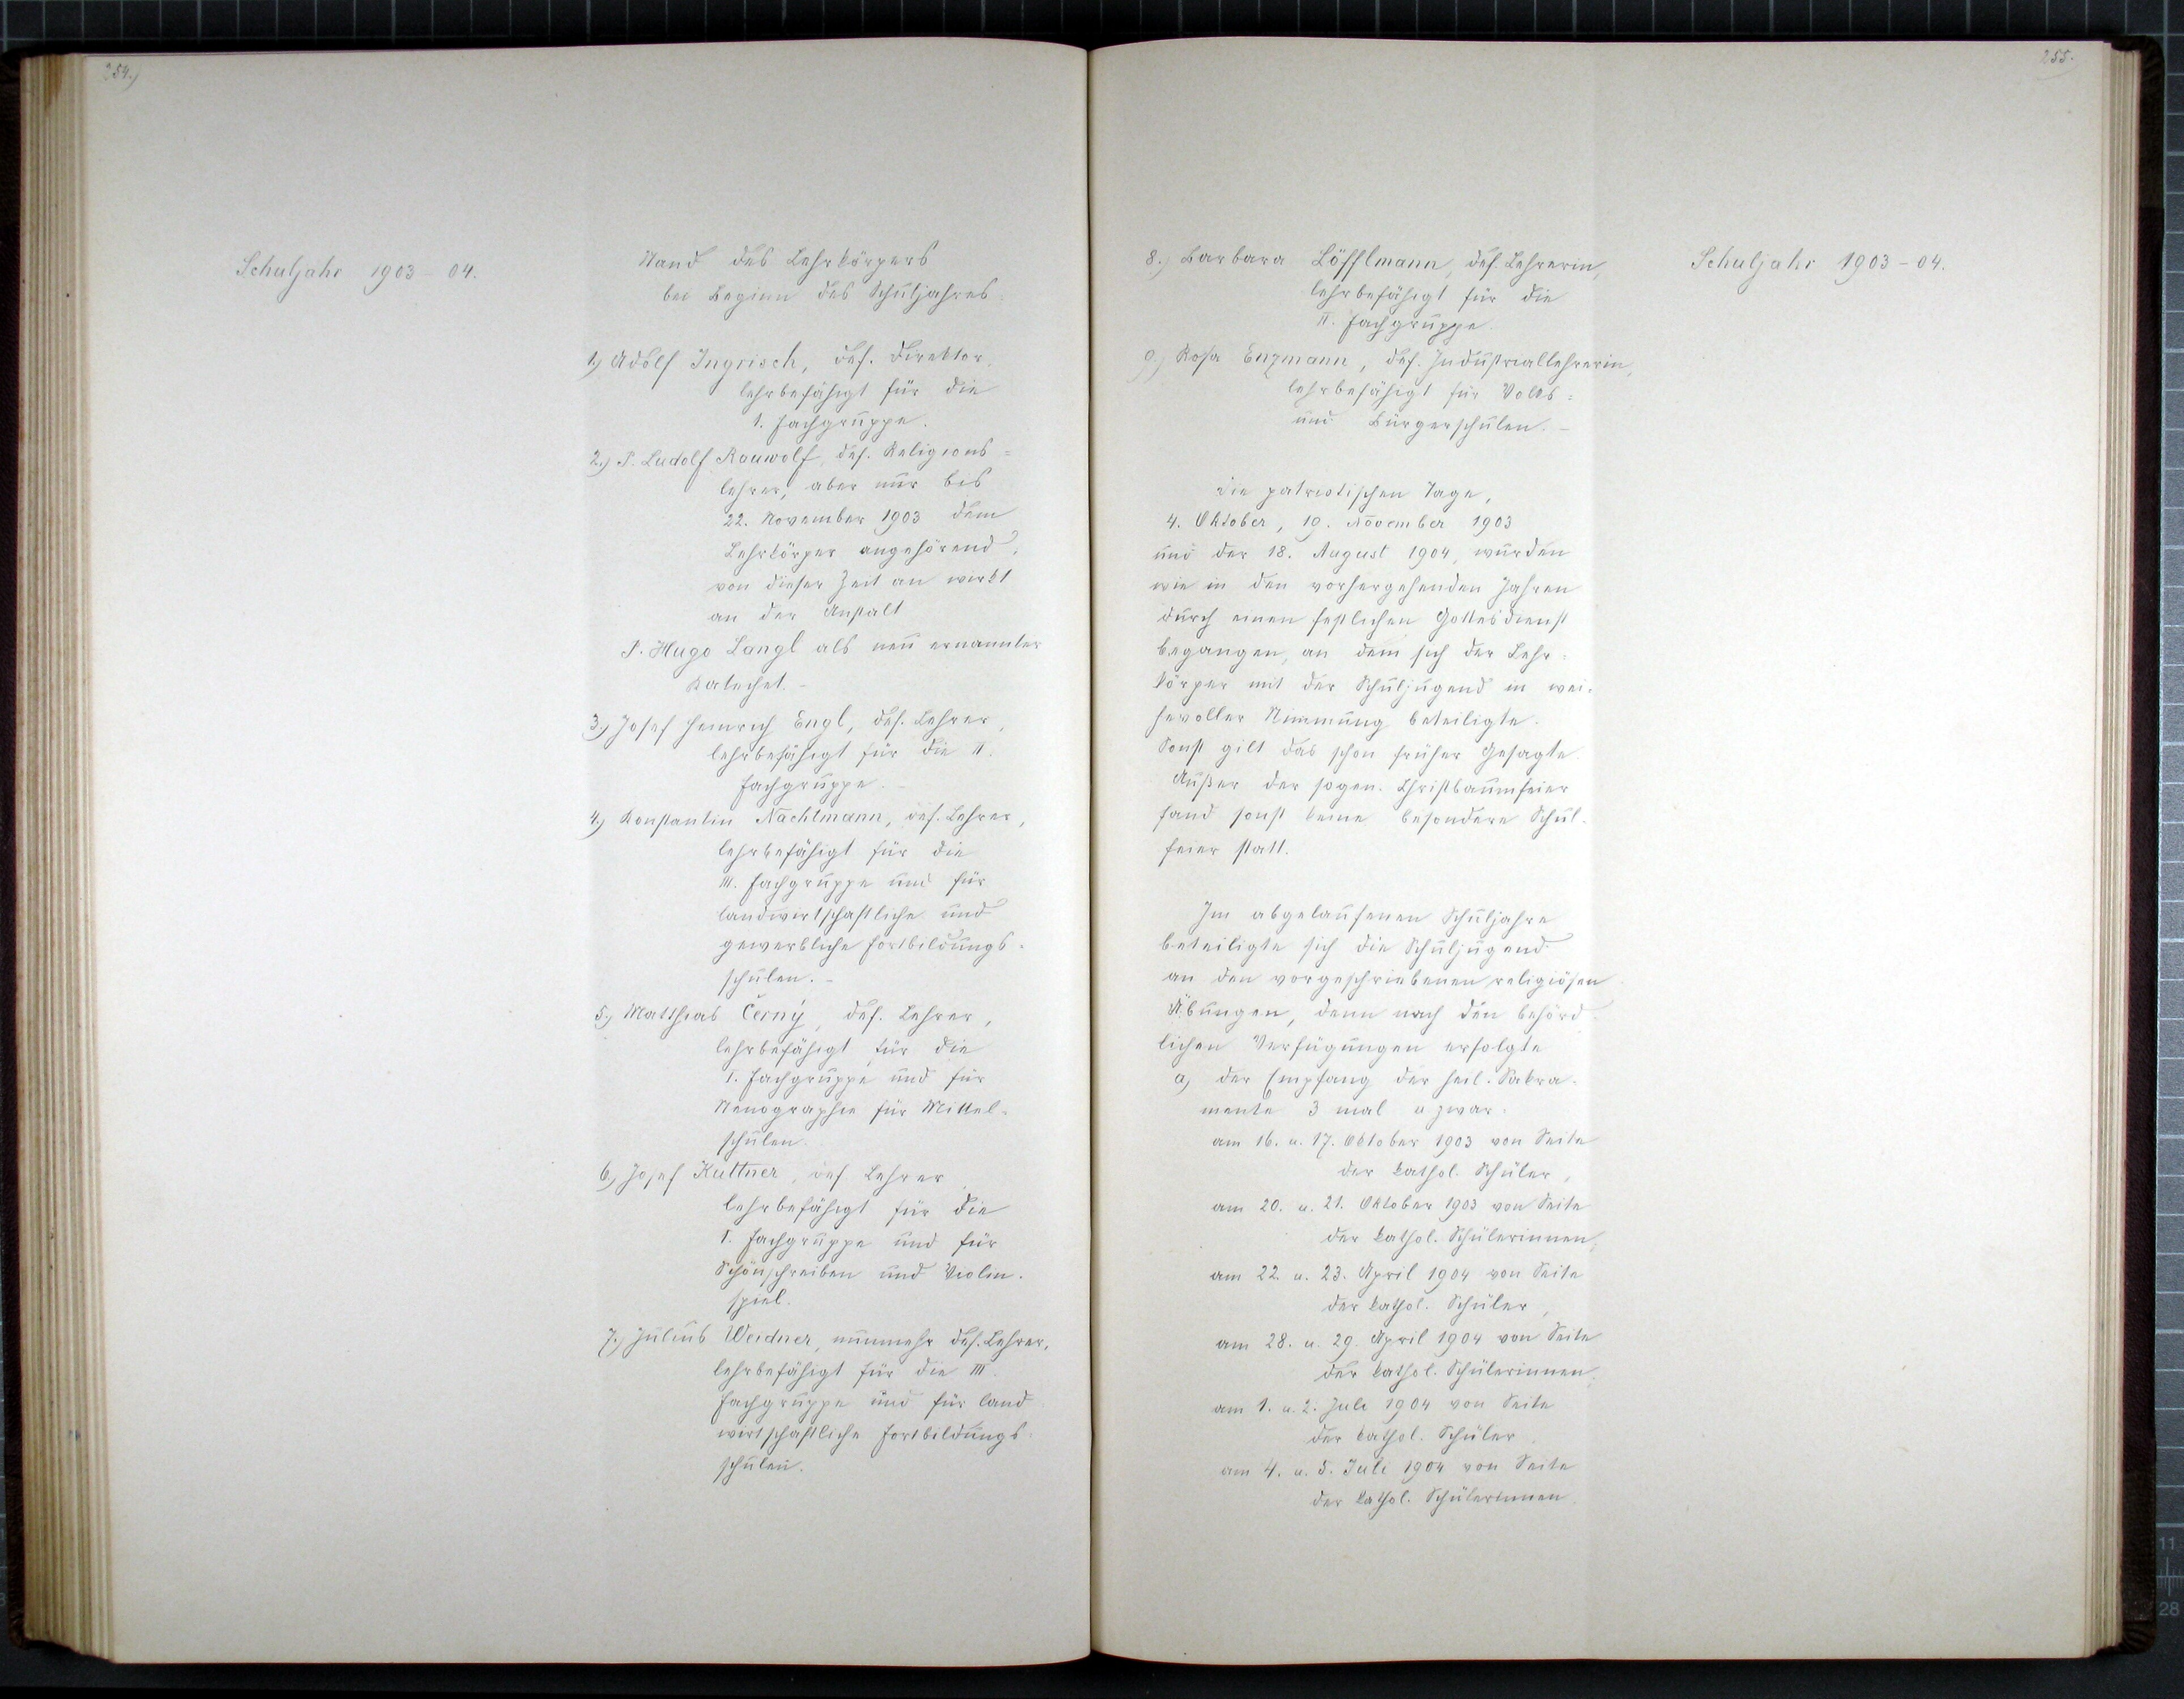 254.)
Schuljahr 1903-04.
Stand des Lehrkörpers
bei Beginn des Schuljahres.
1.) Adolf Ingrisch, def. Direktor,
lehrbefähigt für die
1. Fachgruppe.
2.) P. Ludolf Rauwolf, def. Religions=
lehrer, aber nur bis
22. November 1903 dem
Lehrkörper angehörend,
von dieser Zeit an wirkt
an der Anstalt
P. Hugo Langl als neu ernannter
Katechet. -
3.) Josef Heinrich Engl, def. Lehrer,
lehrbefähigt für die II.
Fachgruppe. -
4.) Konstantin Nachtmann, def. Lehrer,
lehrbefähigt für die
III. Fachgruppe und für
landwirtschaftliche und
gewerbliche Fortbildungs=
schulen. -
5.) Matthias Černý, def. Lehrer,
lehrbefähigt für die
I. Fachgruppe und für
Stenographie für Mittel=
schulen.
6.) Josef Kuttner, def. Lehrer
lehrbefähigt für die
I. Fachgruppe und für
Schönschreiben und Violin.
spiel.
7.) Julius Weidner, nunmehr def. Lehrer,
lehrbefähigt für die III.
Fachgruppe und für land
wirtschaftliche Fortbildungs=
schulen.
255.
8.) Barbara Löfflmann, def. Lehrerin,
lehrbefähigt für die
II. Fachgruppe.
9.) Rosa Enzmann, def. Industriallehrerin,
lehrbefähigt für Volks=
und Bürgerschulen. -
Schuljahr 1903-04.
Die patriotischen Tage,
4. Oktober, 19. November 1903
und der 18. August 1904, wurden
wie in den vorhergehenden Jahren
durch einen festlichen Gottesdienst
begangen, an dem sich der Lehr=
körper mit der Schuljugend in wei=
hevoller Stimmung beteiligte.
Sonst gilt das schon früher Gesagte.
Außer der sogen. Christbaumfeier
fand sonst keine besondere Schul-
feier statt.
Im abgelaufenen Schuljahre
beteiligte sich die Schuljugend
an den vorgeschriebenen religiösen
Übungen, denn nach den behörd
lichen Verfügungen erfolgte
a) der Empfang der heil. Sakra-
mente 3 mal u. zwar:
am 16. u. 17. Oktober 1903 von Seite
der kathol. Schüler,
am 20. u. 21. Oktober 1903 von Seite
der kathol. Schülerinnen,
am 22. u. 23. April 1904 von Seite
der kathol. Schüler,
am 28. u. 29. April 1904 von Seite
der kathol. Schülerinnen,
am 1. u. 2. Juli 1904 von Seite
der kathol. Schüler
am 4. u. 5. Juli 1904 von Seite
der kathol. Schülerinnen